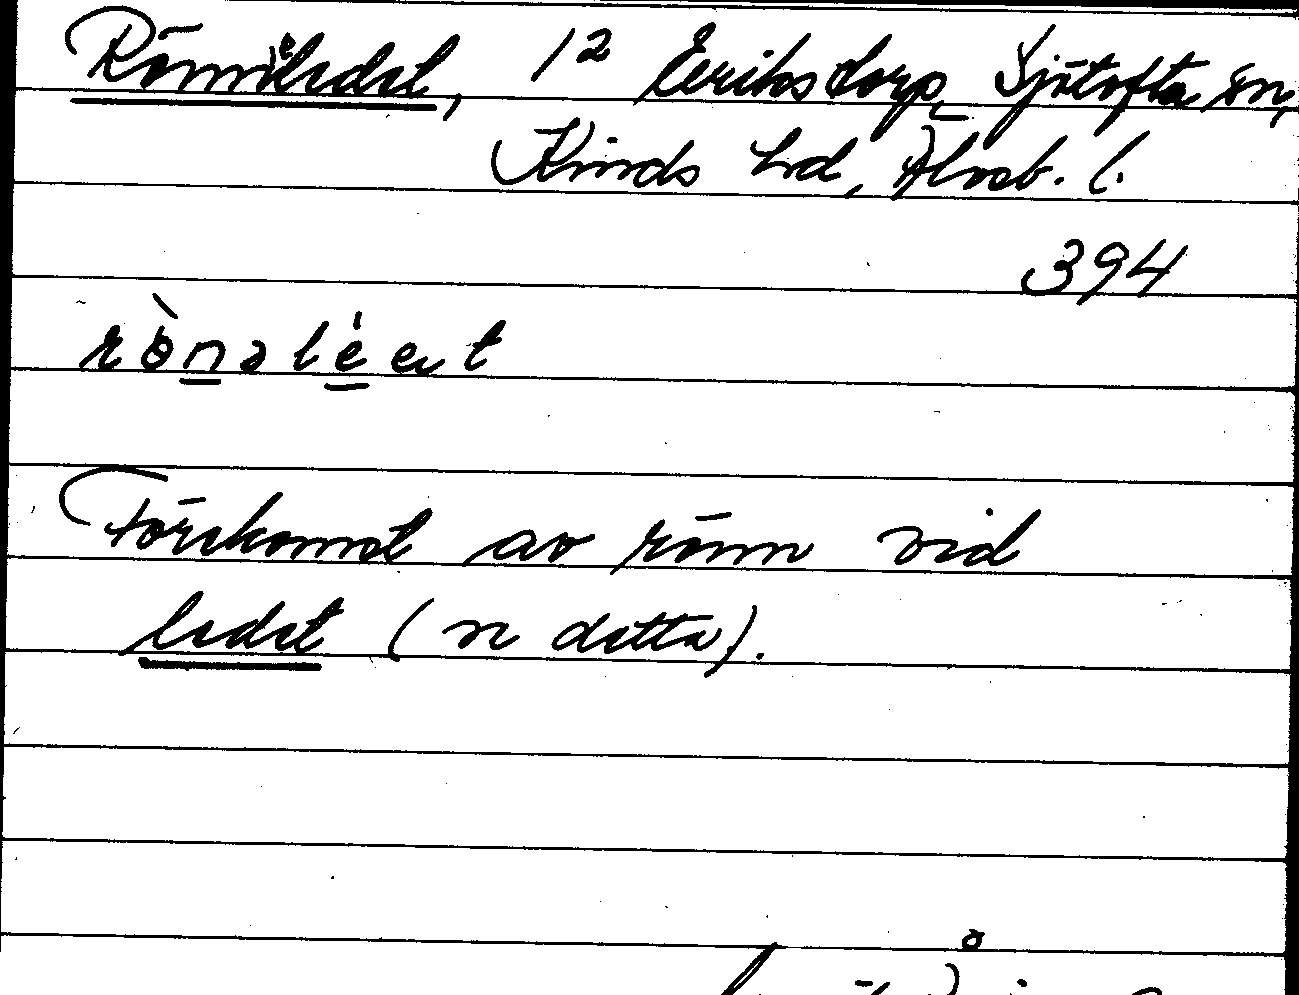 Rönneledet, 12 Eeriksdorp, Sjötofta sn,
Kinds hd, Älvsb. l.
394
rònəléet
Förekomst av rönn vid
ledet (n detta).